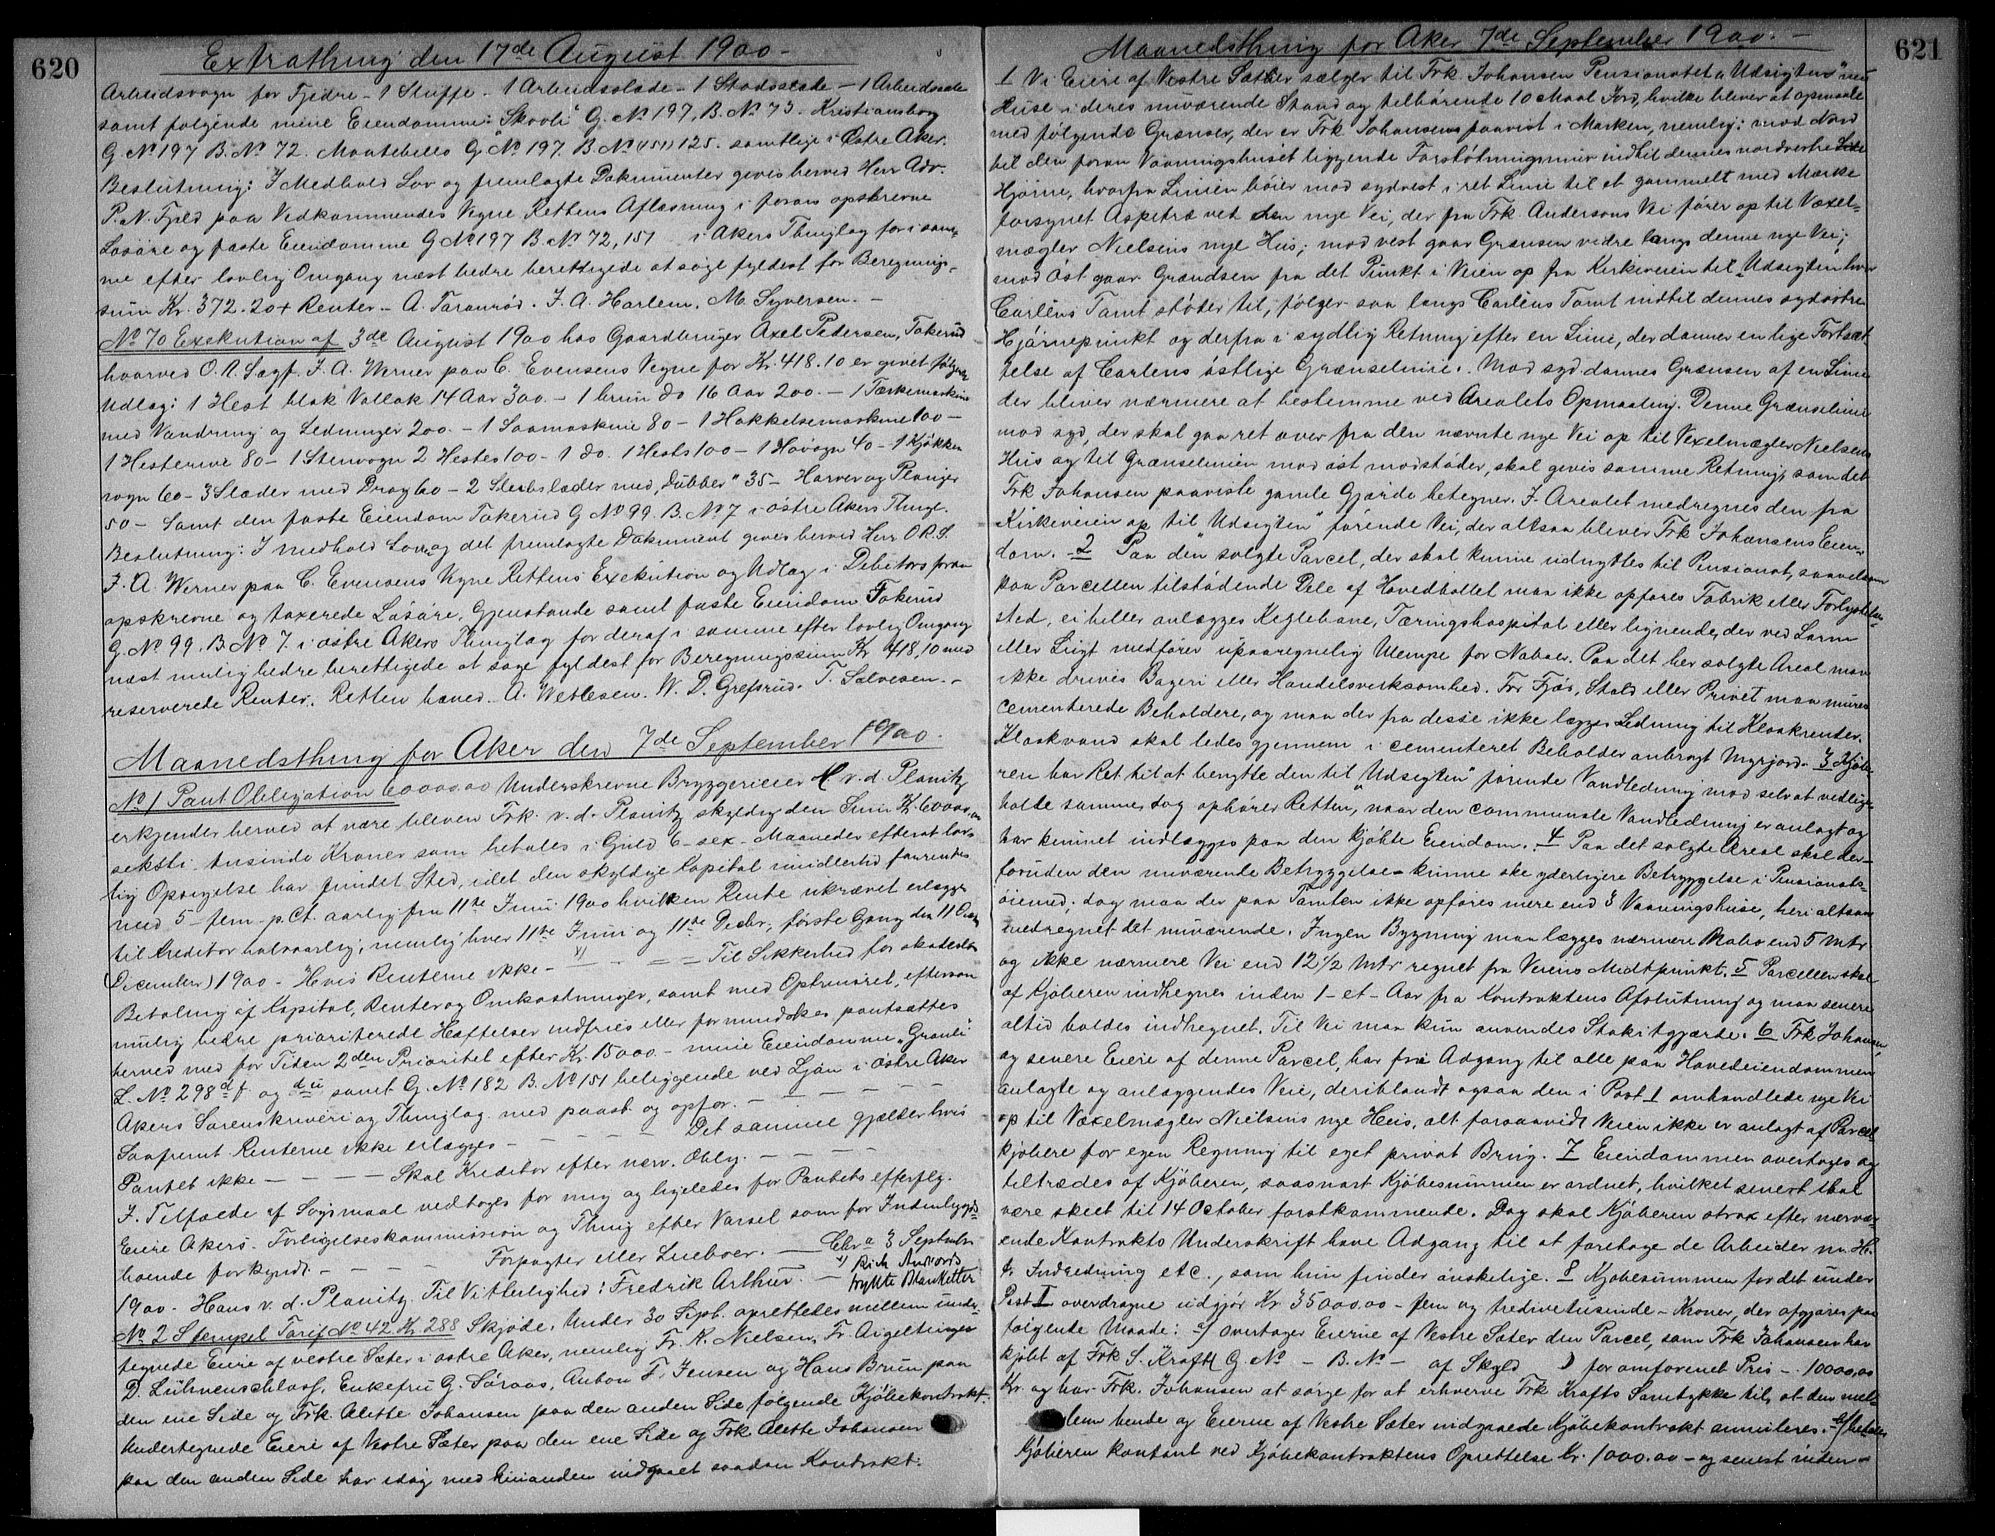 620
Extrathing den 17de August 1900 -
Arbeidsvogn for Fjedre - 1 Sluffe - 1 Arbeidsslæde - 1 Stadsslæde - 1 Arbeidssele
samt følgende mine Eiendomme: "Skooli" G. No 197, B. No 73. Kristiansborg
G. No 197 B. No 72. Montebello G. No 197. B. No 125. samtlige i Østre Aker.
Beslutning: I Medhold Lov og fremlagte Dokumenter gives herved Herr Adv.
P. N. Fjeld paa Vedkommendes Vegne Rettens Aflæsning i foran opskrevne
Løsøre og faste Eiendomme G No 197 B. No 72, 151 i Akers Thinglag for i sam-
me efter lovlig Omgang næst bedre berettigede at søge fyldest for Beregnings-
sum Kr. 372.20 + Renter - A. Taranrød. J. A. Harlem. M. Syversen. -
No 70 Exekution af 3de August 1900 hos Gaardbruger Axel Pedersen, Tokerud
hvorved O. R. Sagf. J. A. Werner paa C. Evensens Vegne for Kr. 418.10 er givet følgende
Udlæg: 1 Hest blak Vallak 14 Aar 300. - 1 brun do 16 Aar 200. - 1 Tærskemaskine
med Vandring og Ledninger 200. - 1 Saamaskine 80 - 1 Hakkelsemaskine 100 -
1 Hesterive 80 - 1 Stenvogn 2 Hestes 100 - 1 do. 1 Hests 100 - 1 Høvogn 40 - 1 Kjøkken
vogn 60 - 3 Slæder med Drag 60 - 2 Sleebslæder med "Dubber" 35 - Harver og Plouger
50 - Samt den faste Eiendom Tokerud G No 99. B. No 7 i østre Akers Thingl.
Beslutning: I medhold Lov og det fremlagte Dokument gives herved Herr O. R. S.
J. A. Werner paa C. Evensens Vegne Rettens Exekution og Udlæg i Debitors foran
opskrevne og taxerede Løsøre, Gjenstande samt faste Eiendom Tokerud
G. No 99. B. No 7. i østre Akers Thinglag for deraf i samme efter lovlig Omgang
næst mulig bedre berettigede at søge fyldest for Beregningssum Kr 418,10 med
reserverede Renter. Retten hæved. A. Wetlesen. W. D. Grefsrud. T. Salvesen. -
Maanedsthing for Aker den 7de September 1900.
No 1 Pant Obligation 60000.00 Underskrevne Bryggerieier H v. d. Planitz
erkjender herved at være bleven Frk. v. d. Planitz skyldig den Sum Kr. 60000,00
seksti tusinde Kroner som betales i Guld 6 - sex - Maaneder efterat lov-
lig Opsigelse har fundet Sted, idet den skyldige Capital imidlertid forrentes
med 5 - fem - p. Ct. aarlig fra 11te Juni 1900 hvilken Rente ukrævet erlægges
til Kreditor halvaarlig, nemlig hver 11te Juni og 11te Decbr, første Gang den 11
December) 1900 - Hvis Renterne ikke - x) - - Til Sikkerhed for skadesløs
Betaling af Kapital, Renter og Omkostninger, samt med Oprensret, eftersom
mulig bedre prioriterede Hæftelser indfries eller formindskes pantsættes
herved med for Tiden 2den Prioritet efter Kr. 15000. - mine Eiendomme "Granli"
L. No 298 d f og d ü samt G. No 182 B. No 151 beliggende ved Ljan i østre Aker
Akers Sorenskriveri og Thinglag med paast. og opfør. - - - - -
Saafremt Renterne ikke erlægges - - - - - Det samme gjælder hvis
Pantet ikke - - - - Skal Kreditor efter nærv. Oblig. - - - -
I Tilfælde af Søgsmaal vedtages for mig og ligeledes for Pantets efterflg.
Eiere Akers Forligelseskommission og Thing efter Varsel som for Indenbygds-
boende forkyndt. - - - - Forpagter eller Leieboer. - Chr.a 3 September
1900. Hans v. d. Planitz. Til Vitterlighed: Fredrik Arthur. - x) Rich Andvords trykte Blanketter
No 2 Stempel Tarif No 42 Kr. 288 Skjøde. Under 30 Sept. oprettedes mellem under-
tegnede Eiere af vestre Sæter i østre Aker, nemlig Fr. K. Nielsen, Fr. Aigeltinger
D. Lühnenschlass, Enkefru G. Søraas, Anton F. Jensen og Hans Bruun paa
den ene Side og Frk. Alette Johansen paa den anden Side følgende Kjøbekontrakt.
Undertegnede Eiere af Vestre Sæter paa den ene Side og Frk Alette Johansen
paa den anden Side har idag med hinanden indgaaet saadan Kontrakt:
621
Maanedsthing for Aker 7de September 1900. -
1 Vi Eiere af Vestre Sæter sælger til Frk. Johansen Pensionatet "Udsigten" med
Huse i deres nuværende Stand og tilhørende 10 Maal Jord, hvilke bliver at opmaale
med følgende Grænser, der er Frk Johansens paavist i Marken, nemlig: mod Nord
til den foran Vaaningshuset liggende Forstøtningsmur indtil dennes nordvestre
Hjørne, hvorfra Linien bøier mod sydvest i ret Linie til et gammelt med Mærke
forsynet Aspetræ ved den nye Vei, der fra Frk Andersons Vei fører op til Vexel-
mægler Nielsens nye Hus; mod vest gaar Grænsen videre langs denne nye Vei;
mod Øst gaar Grændsen fra det Punkt i Veien op fra Kirkeveien til "Udsigten" hvor
Carléns Tomt støder til, følger saa langs Carléns Tomt indtil dennes sydøstre
Hjørnepunkt og derfra i sydlig Retning efter en Linie, der danner en lige Fortsæt
telse af Carlens østlige Grænselinie. Mod syd dannes Grænsen af en Linie
der bliver nærmere at bestemme ved Arealets Opmaaling. Denne Grænselinie
mod syd, der skal gaa ret over fra den nævnte nye Vei op til Vexelmægler Nielsens
Hus og til Grænselinien mod øst modstøder, skal gives samme Retning, som det
Frk Johansen paaviste gamle Gjærde betegner. I Arealet medregnes den fra
Kirkeveien op til "Udsigten" førende Vei, der altsaa bliver Frk Johansens Eien-
dom. 2 Paa den solgte Parcel, der skal kunne udnyttes til Pensionat, saavelsom
paa Parcellen tilstødende Dele af Hovedbøllet maa ikke opføres Fabrik eller Forlystelses-
sted, ei heller anlægges Keglebane, Tæringshospital eller lignende, der ved Larm
eller Lugt medfører upaaregnelig Ulempe for Naboer. Paa det her solgte Areal maa
ikke drives Bageri eller Handelsvirksomhed. For Fjøs, Stald eller Privet maa mures
cementerede Beholdere, og maa der fra disse ikke lægges Ledning til Kloakrender.
Kloakvand skal ledes gjennem i cementeret Beholder anbragt Myrjord. 3 Kjøbe-
ren har Ret til at benytte den til "Udsigten" førende Vandledning mod selv at vedlige-
holde samme, dog ophører Retten, naar den communale Vandledning er anlagt og
har kunnet indlægges paa den kjøbte Eiendom. 4 Paa det solgte Areal skal der-
foruden den nuværende Bebyggelse kunne ske yderligere Bebyggelse i Pensionats-
øiemed; dog maa der paa Tomten ikke opføres mere end 3 Vaaningshuse, heri altsaa
medregnet det nuværende. Ingen Bygning maa lægges nærmere Nabo end 5 Mtr
og ikke nærmere Vei end 12 1/2 Mtr regnet fra Veiens Midtpunkt. 5 Parcellen skal
af Kjøberen indhegnes inden 1 - et - Aar fra Kontraktens Afslutning og maa senere
altid holdes indhegnet. Til Vei maa kun anvendes Stakitgjærde. 6 Frk Johansen,
og senere Eiere af denne Parcel, har fri Adgang til alle paa Hovedeiendommen
anlagte og anlæggendes Veie, deriblandt ogsaa den i Post 1 omhandlede nye Vei
op til Vexelmægler Nielsens nye Hus, alt forsaavidt Veien ikke er anlagt af Parcel
kjøbere for egen Regning til eget privat Brug. 7 Eiendommen overtages og
tiltrædes af Kjøberen, saasnart Kjøbesummen er ordnet, hvilket senest skal
være skeet til 14 October førstkommende. Dog skal Kjøberen strax efter nærvær-
ende Kontrakts Underskrift have Adgang til at foretage de Arbeider m. H.
t. Indredning etc., som hun finder ønskelige. 8 Kjøbesummen for det under
Post I overdragne udgjør Kr. 35000.00 - fem og tredivetusende - Kroner, der afgjøres paa
følgende Maade: a/ overtager Eierne af Vestre Sæter den Parcel, som Frk Johansen har
kjøbt af Frk S. Krafft G. No - B. No - af Skyld ) for omforenet Pris - 10000,00
Kr. og har Frk. Johansen at sørge for at erhverve Frk Kraffts Samtykke til, at den mel-
lem hende og Eierne af Vestre Sæter indgaaede Kjøbekontrakt annulleres. b/ betaler
Kjøberen kontant ved Kjøbekontraktens Oprettelse Kr. 1000.00 - og senest inden -